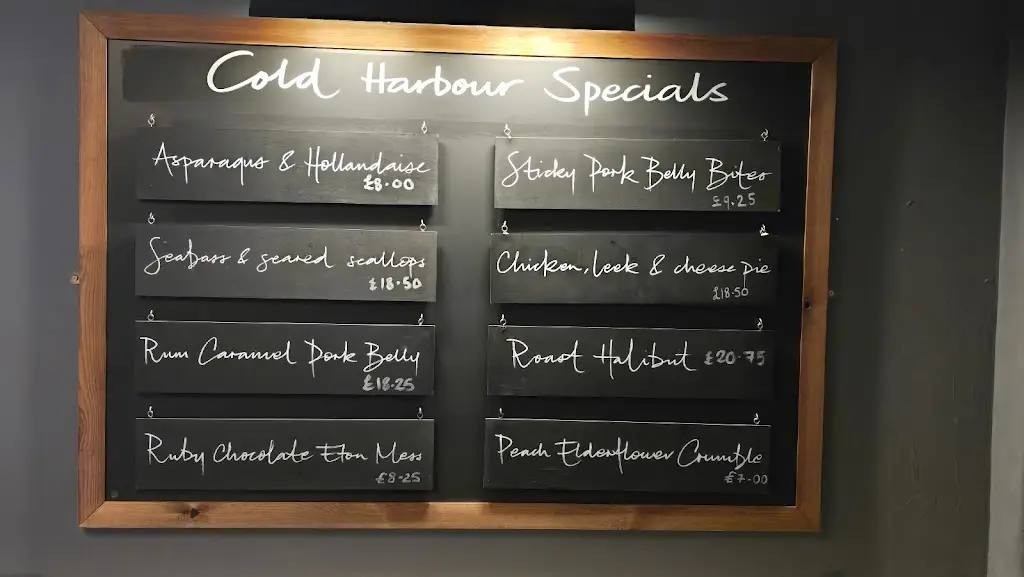 Cold Harbour Specials
Asparagus & Hollandaise
£8.00
Seabass & seared scallops
£18.50
Rum Caramel Pork Belly
£18.25
Ruby Chocolate Eton Mess
£8.25
Sticky Pork Belly Bites
£9.25
Chicken, Leek & cheese pie
£18.50
Roast Halibut £20.75
Peach Elderflower Crumble
£7.00